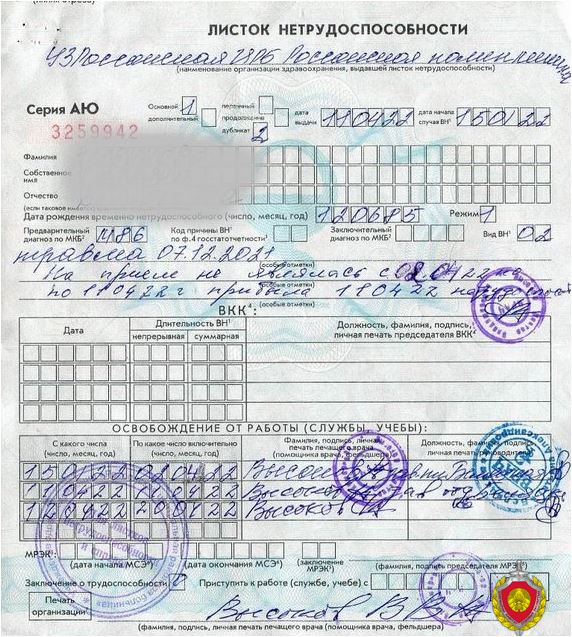 ЛИСТОК НЕТРУДОСПОСОБНОСТИ
УЗ Россонская ЦРБ Россонская поликлиника
(наименование организации здравоохранения, выдавшей листок нетрудоспособности)
Серия АЮ Основной 1 первичный дата выдачи 110422 дата начала случая ВН¹ 150122
3259942 дополнительный продолжение
дубликат 2
Фамилия
Собственное имя
Отчество
(если таковое имеется)
Дата рождения временно нетрудоспособного (число, месяц, год) 120685 Режим 1
Предварительный диагноз по МКБ² Код причины ВН¹ по ф.4 госстатотчетности³ Заключительный диагноз по МКБ² Вид ВН¹ 02
травма 07.12.2021
(особые отметки)
На прием не являлась с 02.04.22
(особые отметки)
по 110422 г прибыла 110422
(особые отметки)
ВКК⁴:
Дата Длительность ВН¹ Должность, фамилия, подпись, личная печать председателя ВКК⁴
непрерывная суммарная
ОСВОБОЖДЕНИЕ ОТ РАБОТЫ (СЛУЖБЫ, УЧЕБЫ):
С какого числа (число, месяц, год) По какое число включительно (число, месяц, год) Фамилия, подпись, личная печать лечащего врача (помощника врача, фельдшера) Должность, фамилия, подпись, личная печать руководителя
150122 020422
110422 110422
120422 200422
МРЭК⁵:
(дата начала МСЭ⁶) (дата окончания МСЭ⁶) (заключение МРЭК⁵) (фамилия, подпись председателя МРЭК⁵)
Заключение о трудоспособности Приступить к работе (службе, учебе) с
Печать организации
(фамилия, подпись, личная печать лечащего врача (помощника врача, фельдшера)